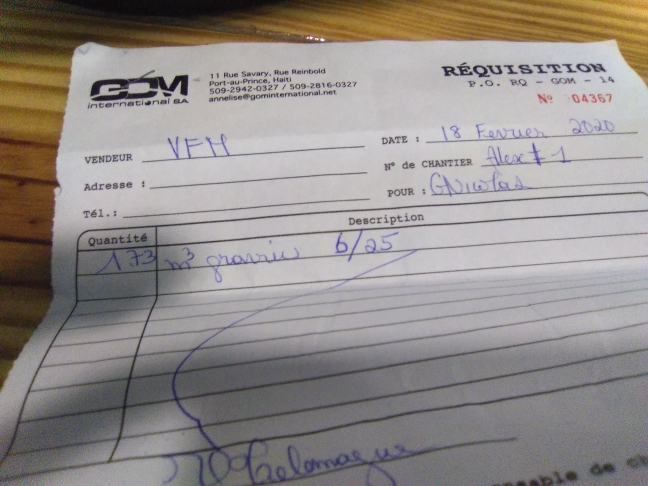 GOM
international SA
11 Rue Savary, Rue Reinbold
Port-au-Prince, Haiti
509-2942-0327 / 509-2816-0327
annelise@gominternational.net
RÉQUISITION
P.O. RQ - GOM - 14
Nº 04367
VENDEUR VFH
DATE : 18 Fevrier 2020
Adresse :
Nº de CHANTIER Alex # 1
Tél.:
POUR : GNicolas
Quantité Description
173 m³ gravier 6/25
de